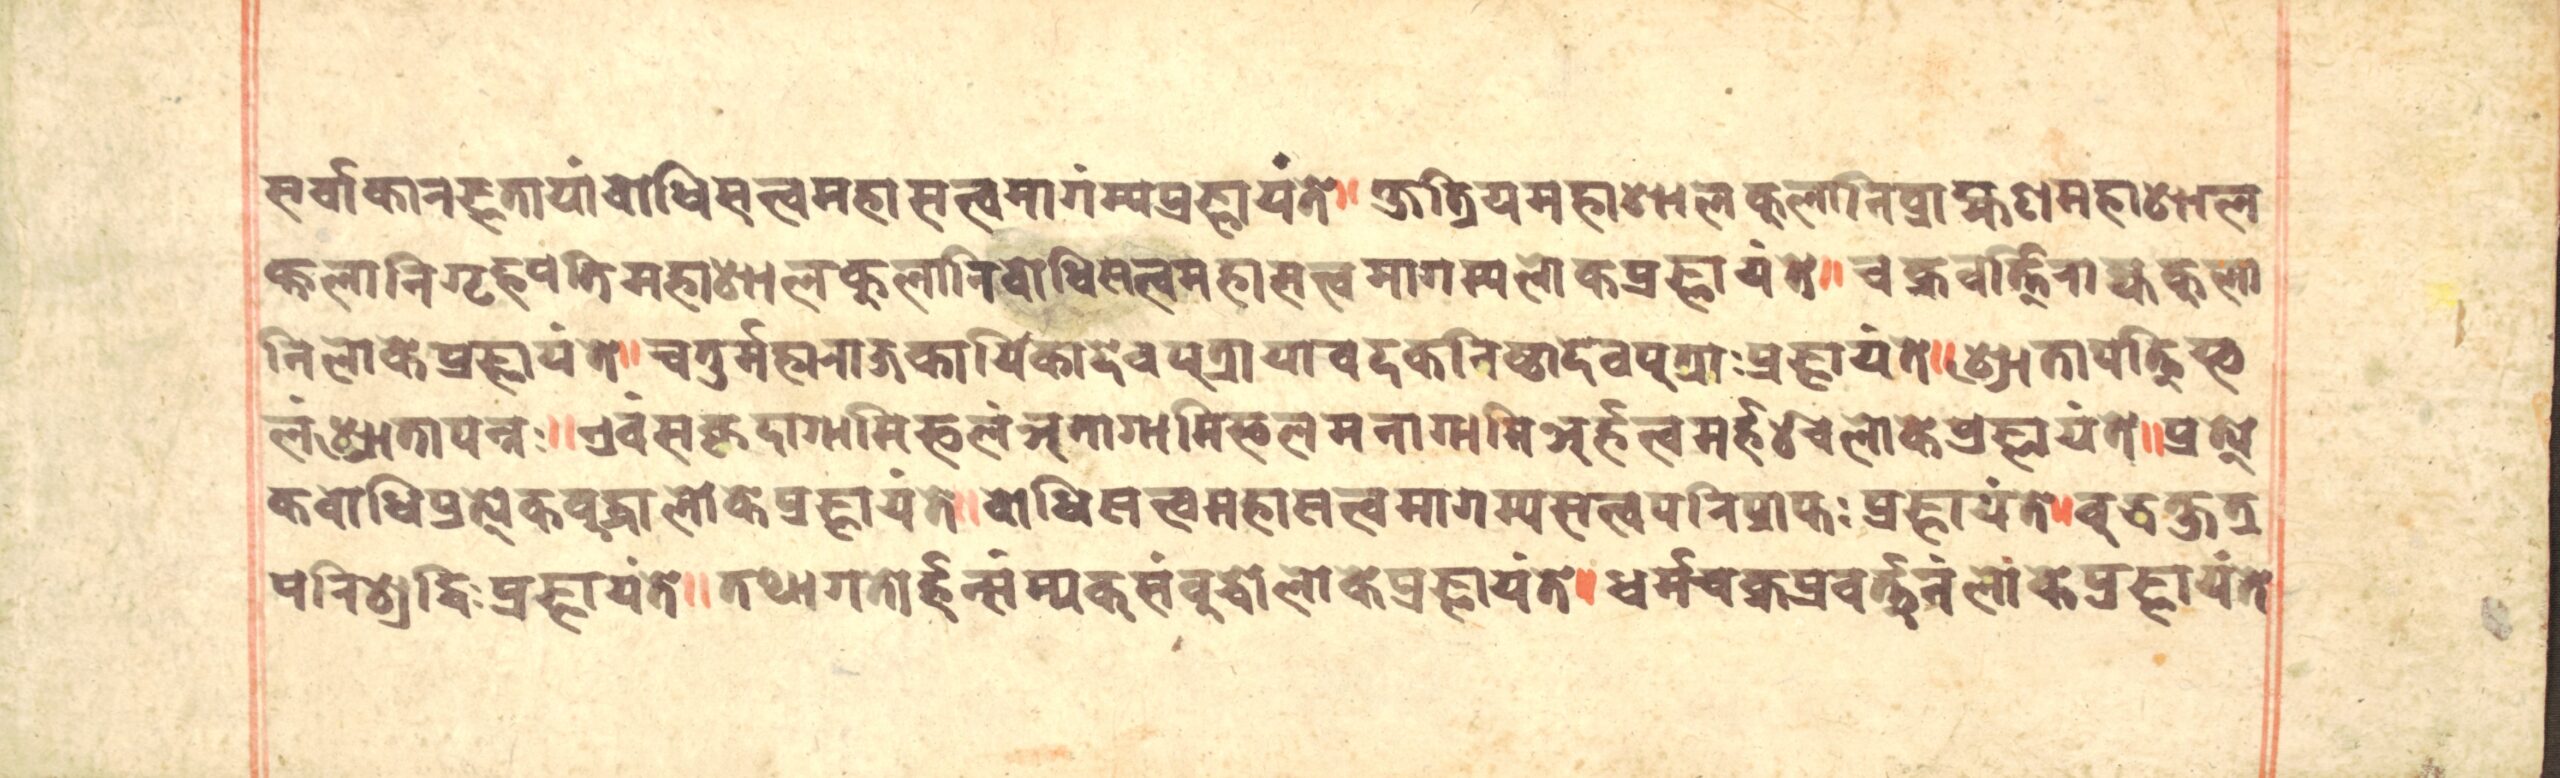 सर्वाकारज्ञतायां बोधिसत्त्वमहासत्त्वमागंम्यप्रज्ञायंते॥ क्षत्रियमहाशालकुलानिब्राह्मणमहाशाल
कुलानिगृहपतिमहाशालकुलानिबोधिसत्त्वमहासत्त्वमागम्यलोकप्रज्ञायंते॥ चक्रवर्त्तिराज्यकुला
निलोकेप्रज्ञायंते॥ चतुर्महाराजकायिकादेवपुत्रायावदकनिष्ठादेवपुत्राःप्रज्ञायंते॥ श्रोतापत्तिफ
लंश्रोतापन्नः॥ एवंसकृदागामिफलंअनागामिफलमनागामिअर्हत्त्वमर्हश्चलोकेप्रज्ञायंते॥ प्रत्ये
कबोधिप्रत्येकबुद्धालोकेप्रज्ञायंते॥ बोधिसत्त्वमहासत्त्वमागम्यसत्त्वपरिपाकः प्रज्ञायंते॥ बुद्धक्षत्र
परिशुद्धिःप्रज्ञायंते॥ तथागतोर्हन्संम्यक्संबुद्धोलोकेप्रज्ञायंते॥ धर्मचक्रप्रवर्त्तनंलोकेप्रज्ञायंते